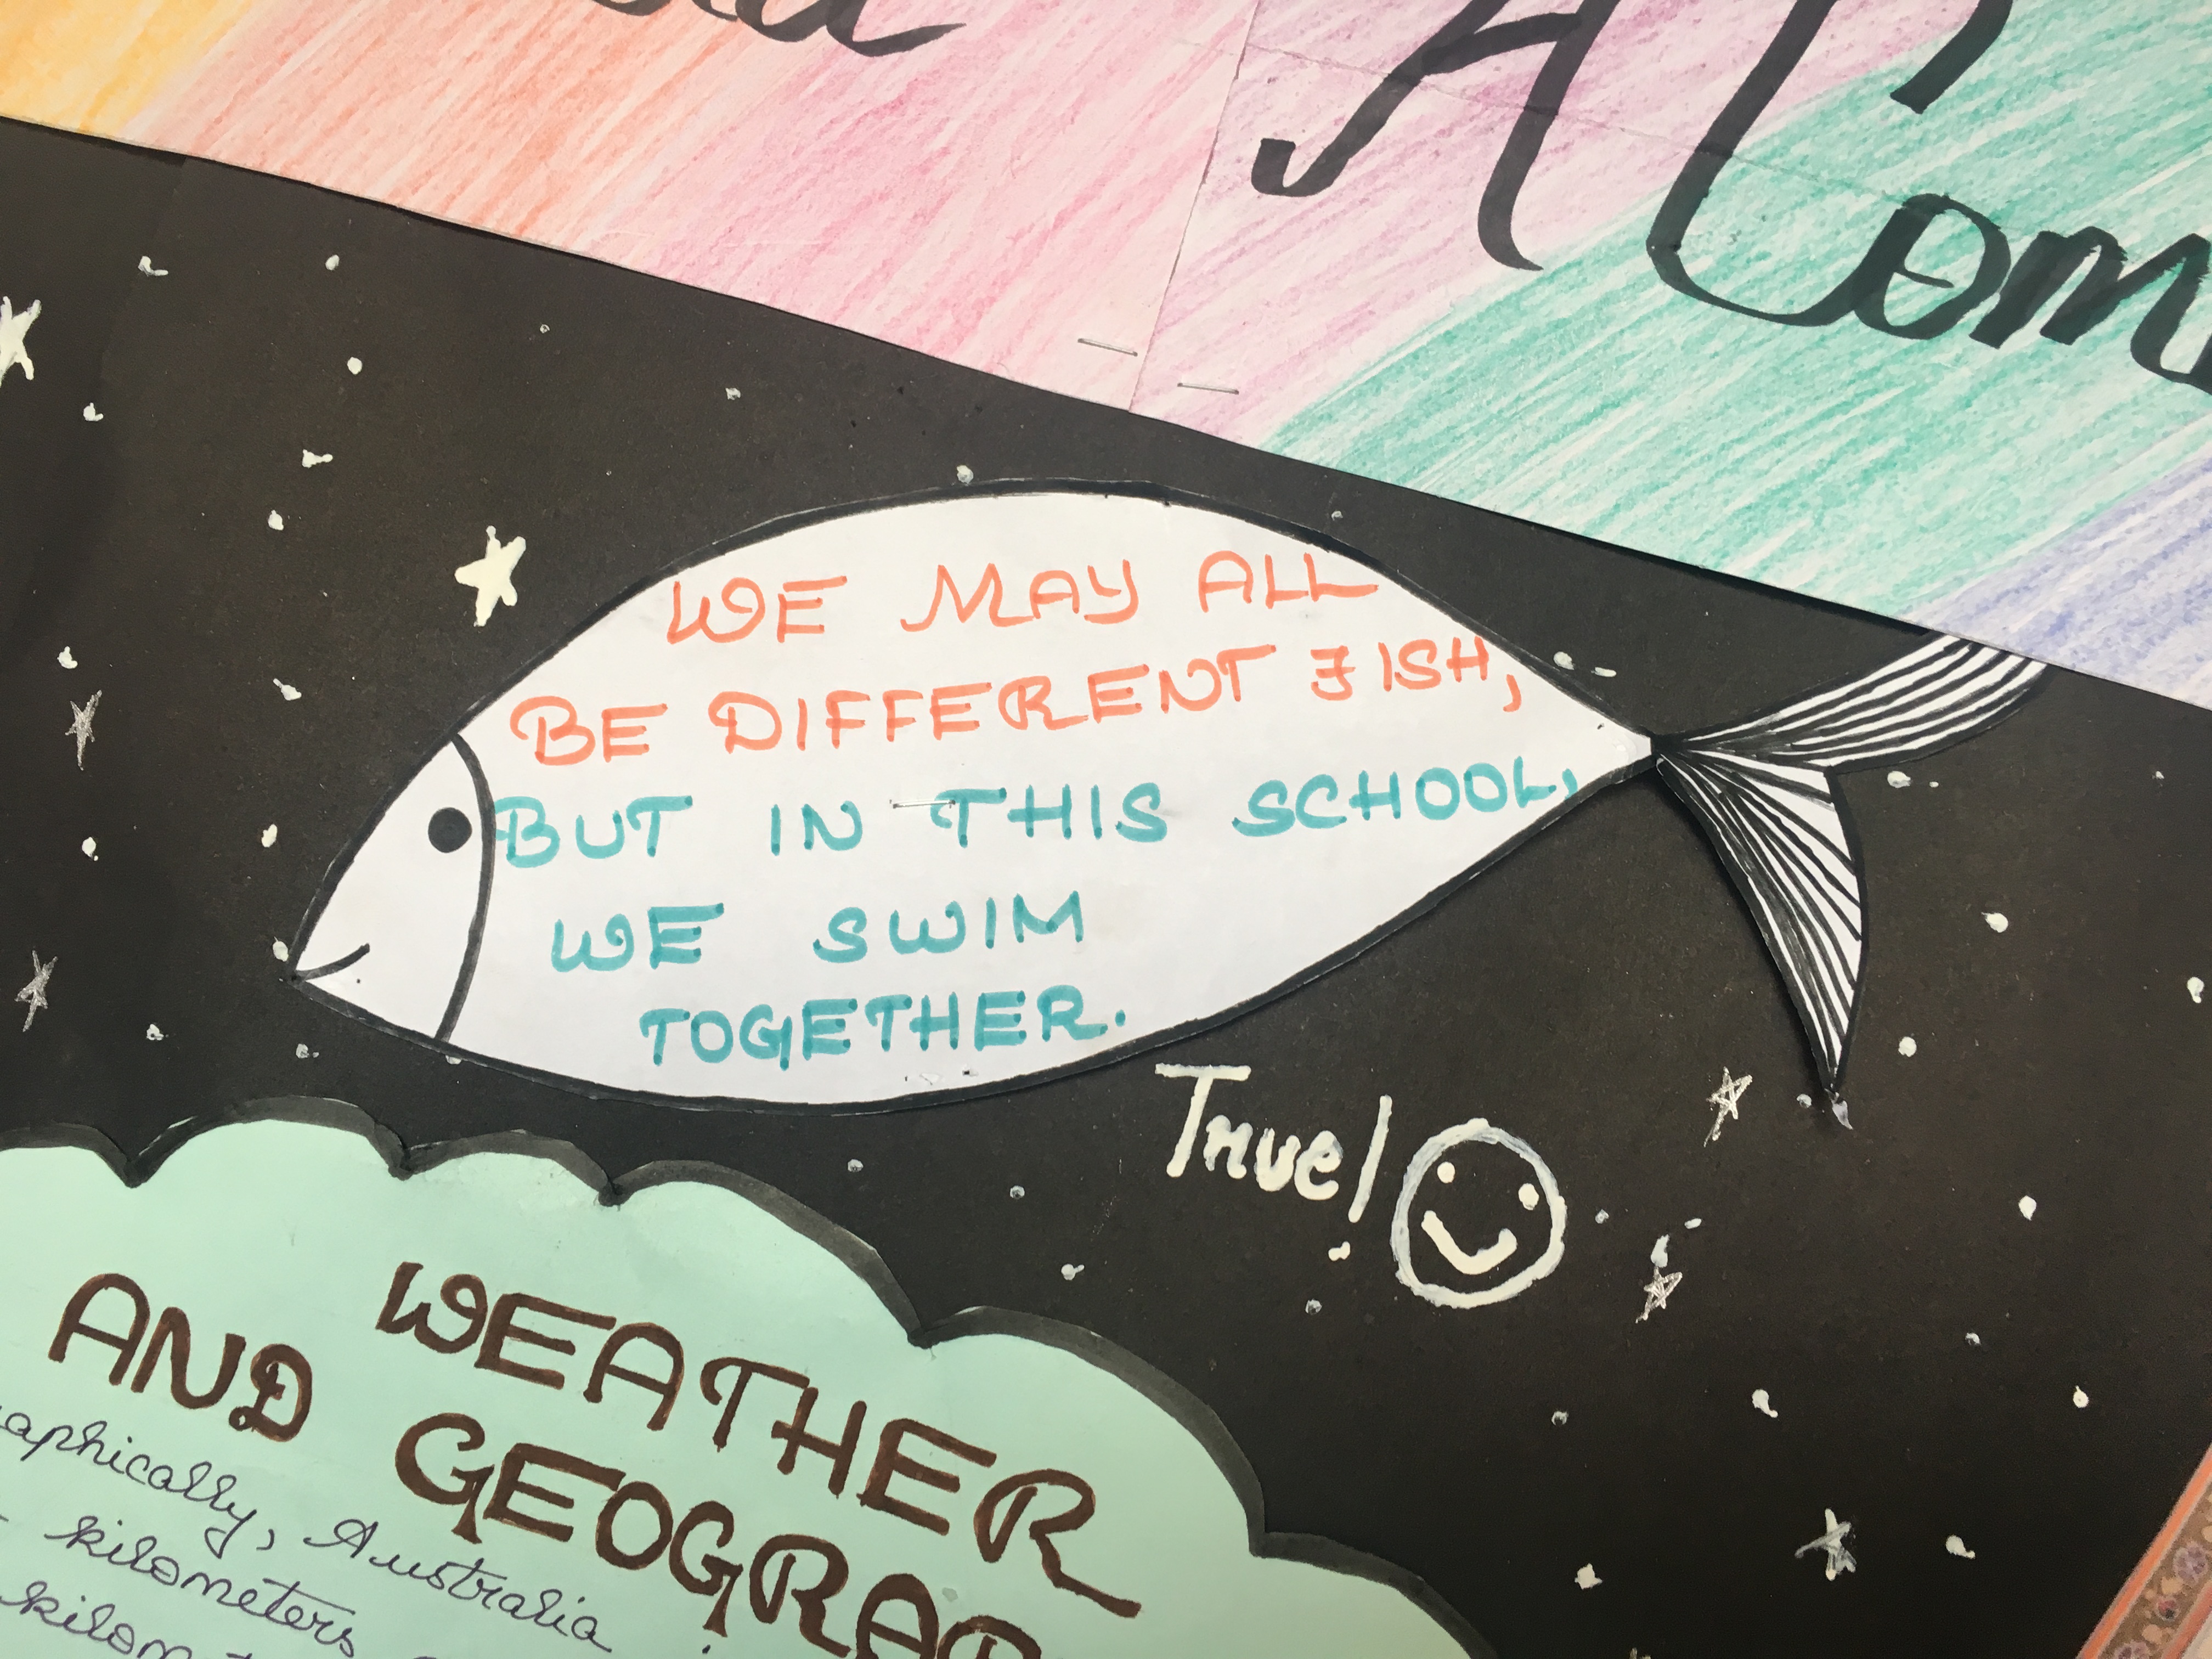 A Com
WE MAY ALL
BE DIFFERENT FISH,
BUT IN THIS SCHOOL,
WE SWIM
TOGETHER.
True!
WEATHER
AND GEOGRAP
raphically, Australia
kilometers
kilomet